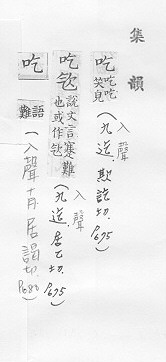 集韻
吃 吃吃笑皃
(入聲九迄.欺訖切.P675)
吃㰟 說文言蹇難也或作㰟
(入聲九迄.居乞切.P675)
吃 語難
(入聲十月居謁切P680)